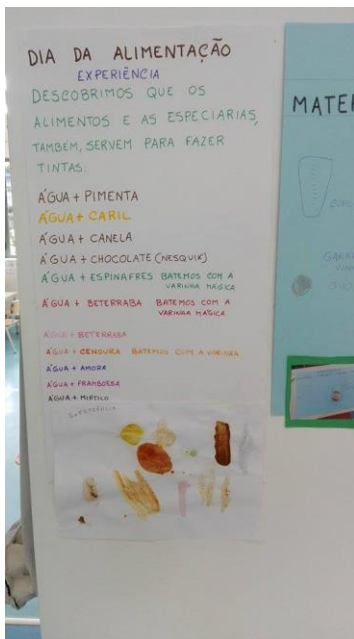 DIA DA ALIMENTAÇÃO
EXPERIÊNCIA
DESCOBRIMOS QUE OS
ALIMENTOS E AS ESPECIARIAS,
TAMBÉM, SERVEM PARA FAZER
TINTAS:
ÁGUA + PIMENTA
ÁGUA + CARIL
ÁGUA + CANELA
ÁGUA + CHOCOLATE (NESQUIK)
ÁGUA + ESPINAFRES BATEMOS COM A
VARINHA MÁGICA
ÁGUA + BETERRABA BATEMOS COM A
VARINHA MÁGICA
ÁGUA + BETERRABA
ÁGUA + CENOURA BATEMOS COM A VARINHA
ÁGUA + AMORA
ÁGUA + FRAMBOESA
ÁGUA + MIRTILO
MATE